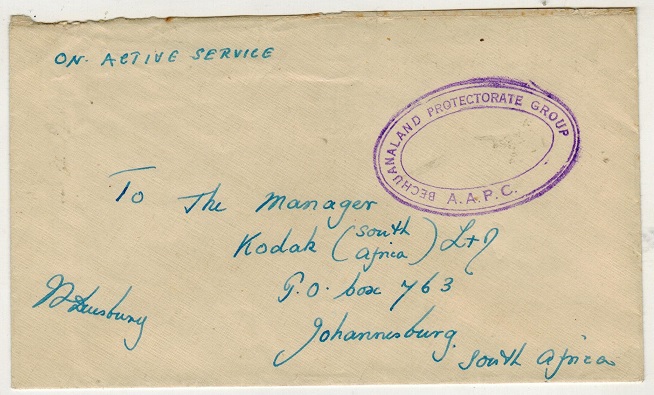 ON ACTIVE SERVICE
BECHUANALAND PROTECTORATE GROUP
A.A.P.C.
To The Manager
Kodak (South Africa) Ltd
P.O. box 763
Johannesburg.
South Africa